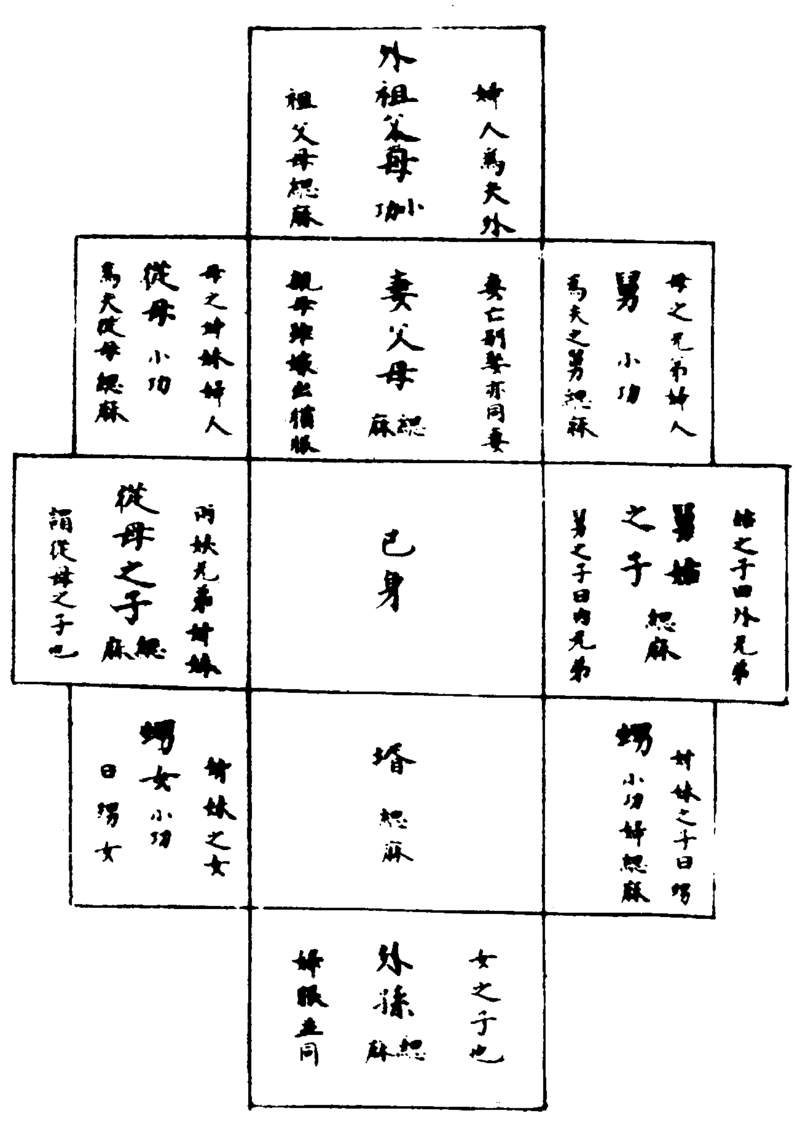 婦人為夫外
外祖父母
小功
祖父母緦麻
母之兄弟婦人
舅 小功
為夫之舅緦麻
妻亡別娶亦同妻
妻父母
緦麻
親母雖嫁出猶服
母之姊妹婦人
從母 小功
為夫從母緦麻
姑之子曰外兄弟
舅姑
之子
緦麻
舅之子曰內兄弟
己身
兩姨兄弟姊妹
從母之子
緦麻
謂從母之子也
姊妹之子曰甥
甥 小功婦緦麻
壻 緦麻
姊妹之女
甥女 小功
曰甥女
女之子也
外孫
緦麻
婦服並同